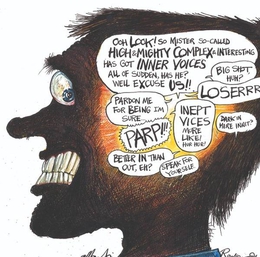 OOH LOOK! SO MISTER SO-CALLED
HIGH & MIGHTY COMPLEX & INTERESTING
HAS GOT INNER VOICES
ALL OF SUDDEN, HAS HE?
WELL EXCUSE US!!
BIG SHOT,
HUH?
LOSERRR
PARDON ME
FOR BEING I'M
SURE
PARP!!!
INEPT
VICES
MORE
LIKE!
HUR HUR!
DARK IN
HERE INNIT?
BETTER IN THAN
OUT, EH?
SPEAK FOR
YOURSELF